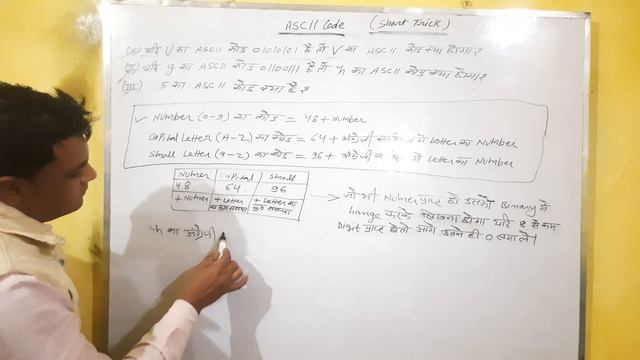 ASCII Code (Short Trick)
(I) यदि U का ASCII कोड 01010101 है तो V का ASCII कोड क्या होगा?
(II) यदि g का ASCII कोड 0110011 है तो h का ASCII कोड क्या होगा?
(III) 5 का ASCII कोड क्या है?
✓ Number (0-9) का कोड = 48 + Number
Capital Letter (A-Z) का कोड = 64 + अंग्रेजी में Letter का Number
Small Letter (a-z) का कोड = 96 + अंग्रेजी में Letter का Number
Numer Capital Small
48 64 96
+ Numer + Letter + Letter का
क्रम संख्या क्रम संख्या
→ जो भी Numer प्राप्त हो उसको Binary में
hange करके लिखना होगा यदि 8 से कम
Digit प्राप्त हो तो आगे उतने ही 0 लगा ले।
h का अंग्रेजी